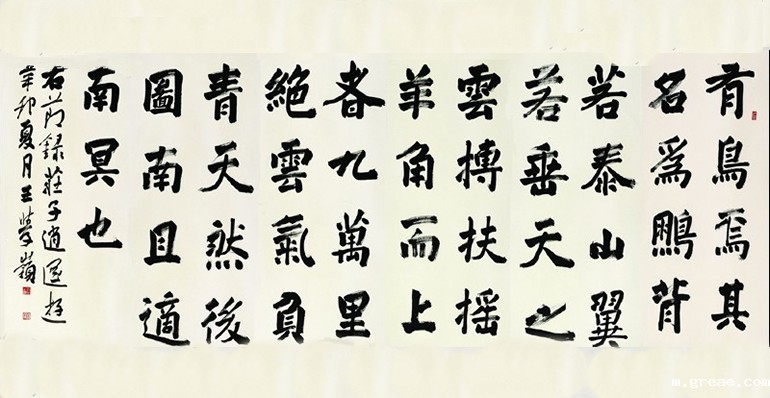 有鳥焉其
名爲鵬背
若泰山翼
若垂天之
雲搏扶摇
羊角而上
者九萬里
絶雲氣負
青天然後
圖南且適
南冥也
右节録莊子逍遥遊
辛卯夏月王
m.greae.com